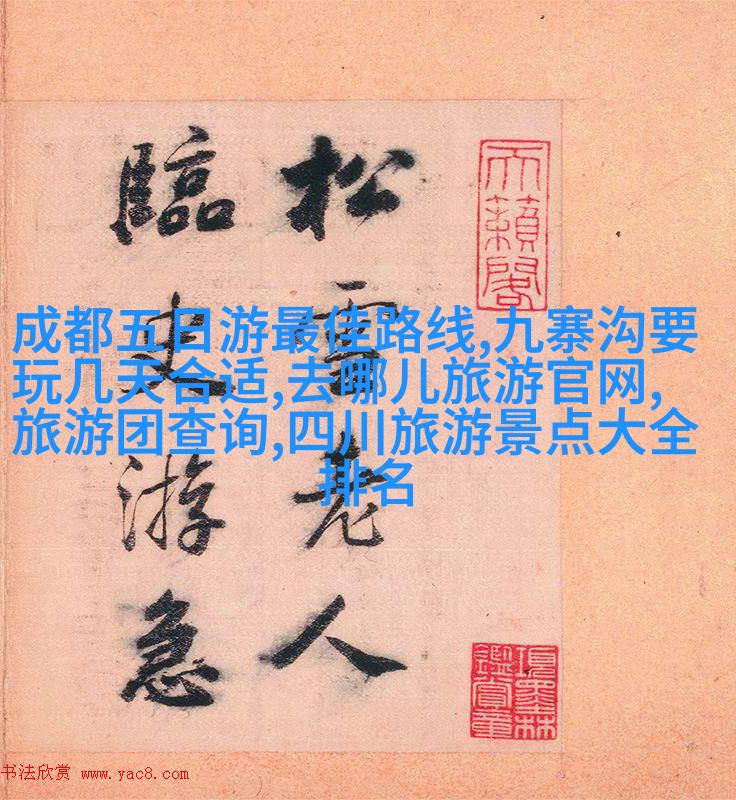 松雪老人
臨史游急
天籟閣
項墨林
鑑賞章
成都五日游最佳路线,九寨沟要
玩几天合适,去哪儿旅游官网,
旅游团查询,四川旅游景点大全
排名
书法欣赏 www.yac8.com